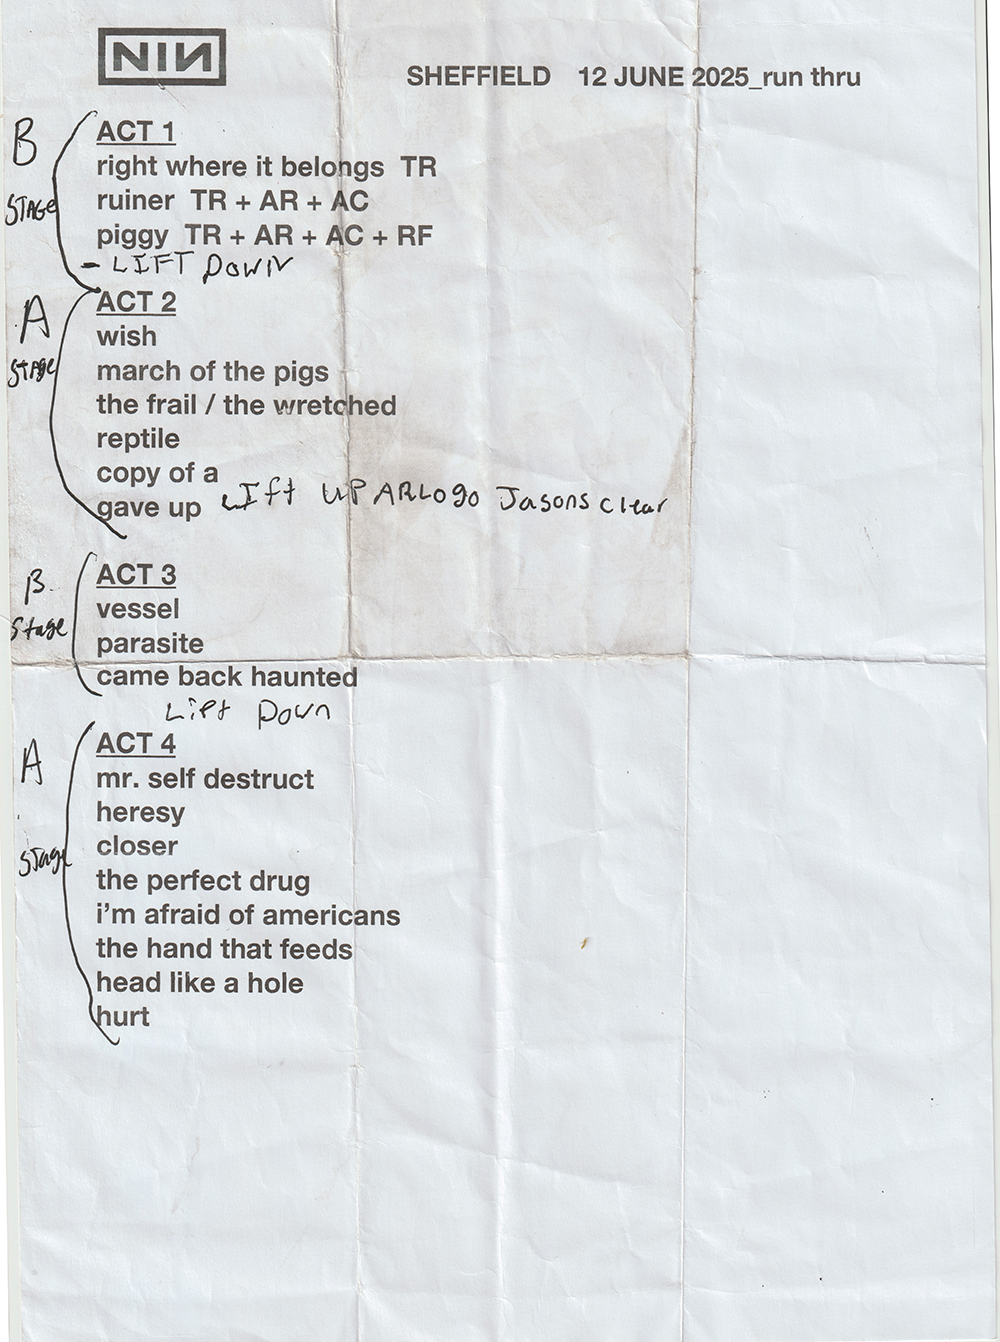 NIN
SHEFFIELD 12 JUNE 2025_run thru
B
STAGE
ACT 1
right where it belongs TR
ruiner TR + AR + AC
piggy TR + AR + AC + RF
- LIFT DOWN
A
STAGE
ACT 2
wish
march of the pigs
the frail / the wretched
reptile
copy of a
gave up LIft UP ARLogo Jasons clear
B
Stage
ACT 3
vessel
parasite
came back haunted
Lift Down
A
STage
ACT 4
mr. self destruct
heresy
closer
the perfect drug
i'm afraid of americans
the hand that feeds
head like a hole
hurt